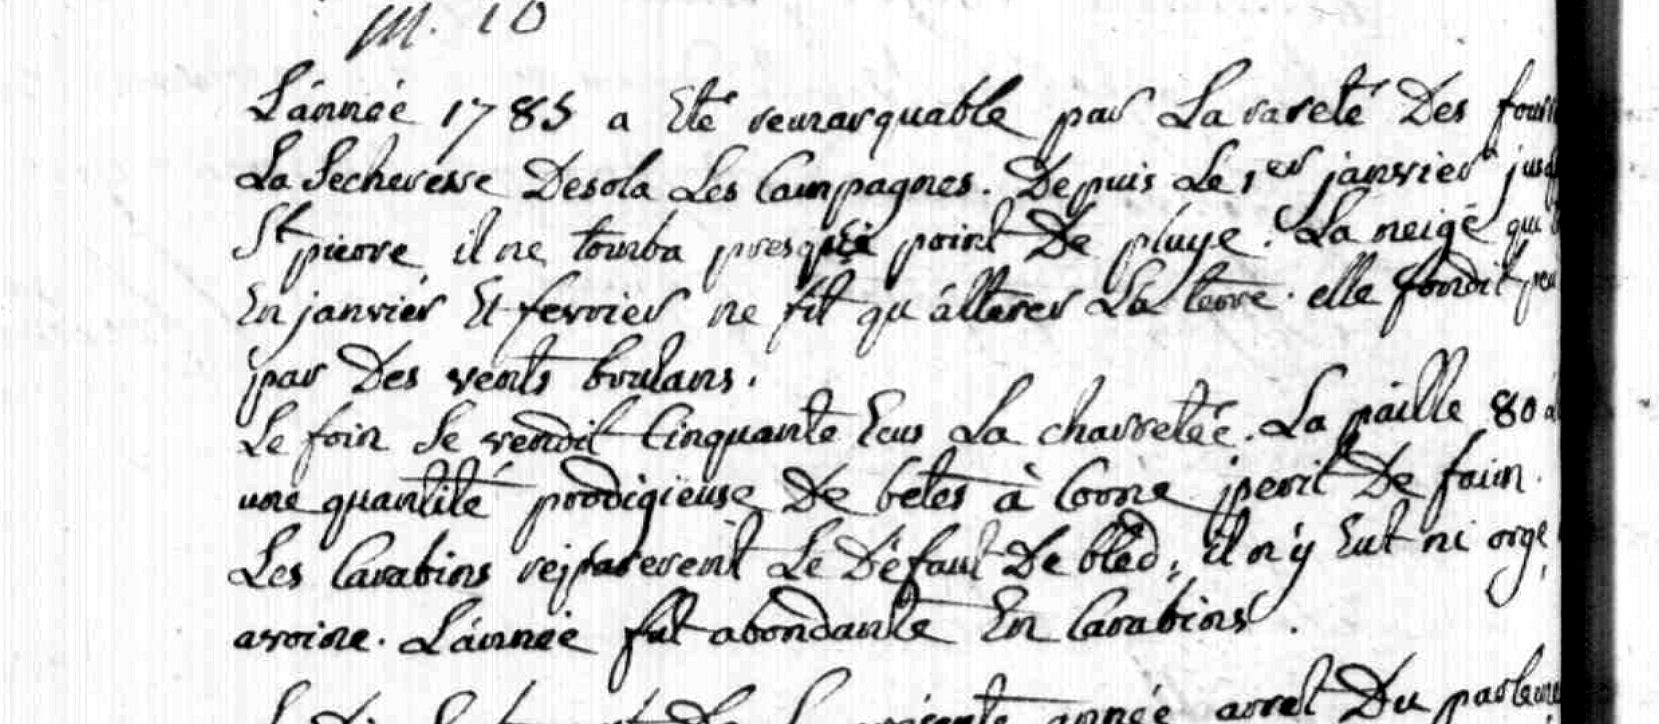 m. 10
L'année 1785 a Eté remarquable par La rareté Des
La Secheresse Desola Les Campagnes. Depuis Le 1er janvier
St pierre il ne tomba presque point De pluye. La neige qui
En janvier Et fevrier ne fit qu'álterer La terre. elle fondit
par Des vents brulans.
Le foin Se vendit Cinquante Ecus La charretée. La paille 80
une quantité prodigieuse De betes à Corne perit De faim.
Les Carabins reparerent Le Défaut De bled, il n'y Eut ni orge,
avoine. L'ánnée fut abondante En Carabins.
De La présente année arret Du